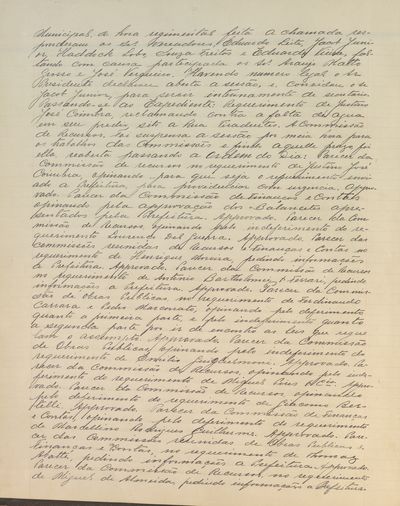 Municipal, á hora regimental feita a chamada res-
ponderam os Srs Vereadores Eduardo Leite, Jacob Juni-
or, Haddock Lobo, Souza Freitas e Eduardo, fal-
tando com causa participada os Srs Araujo Mattos
e José Cerqueira. Havendo numero legal o Sr
Presidente declarou aberta a sessão, e, convidou o Sr
Jacob Junior, para servir extranumerario de secretario
Passando-se ao Expediente: Requerimento de Gustavo
José Coimbra, reclamando contra a falta de agua
em seu predio, sito a rua Tiradentes. A Commissão
de Recursos. Foi suspensa a sessão por meia hora para
os trabalhos das Commissões e findo aquelle prazo foi
ella reaberta passando á ordem do dia: Parecer da
Commissão de recursos no requerimento de Gustavo José
Coimbra, opinando para que seja o requerimento envi-
ado a Prefeitura, para providenciar com urgencia. Appro-
vado. Parecer da Commissão de Finanças e Contas
opinando pela approvação dos Balancetes apre-
sentados pela Prefeitura. Approvado. Parecer da Com-
missão de Recursos opinando pelo indeferimento do re-
querimento Lourenço Del Guerra. Approvado. Parecer das
commissões reunidas de Recursos e Finanças e Contas no
requerimento de Henrique Moreira, pedindo informações
a Prefeitura. Approvado. Parecer da Commissão de Recursos
no requerimento de Antonio Bartholomeu Ferrari, pedindo
informações a Prefeitura. Approvado. Parecer da Commis-
são de Obras Publicas no requerimento de Ferdinando
Carrara e Pedro, opinando pelo deferimento
quanto a primeira parte, e pelo indeferimento quanto
a segunda parte por ir de encontro as leis que regu-
lam o assumpto. Approvado. Parecer da Commissão
de Obras Publicas, opinando pelo indeferimento do
requerimento de Emilio Guglielmoni. Approvado. Pa-
recer da Commissão de Recursos, opinando pelo inde-
ferimento do requerimento de Miguel Pires &Cia. Appro-
vado. Parecer da Commissão de Recursos, opinando
pelo deferimento do requerimento de Giacomo Ber-
telli. Approvado. Parecer da Commissão de Finanças
e Contas, opinando pelo deferimento do requerimento
de Marcellino Rodrigues Guilherme. Approvado. Pare-
cer das Commissões reunidas de Obras Publicas e
Finanças e Contas, no requerimento de Thomaz
Motta, pedindo informações a Prefeitura. Approvado.
Parecer da Commissão de Recursos, no requerimento
de Miguel de Almeida, pedindo informações a Prefeitura.